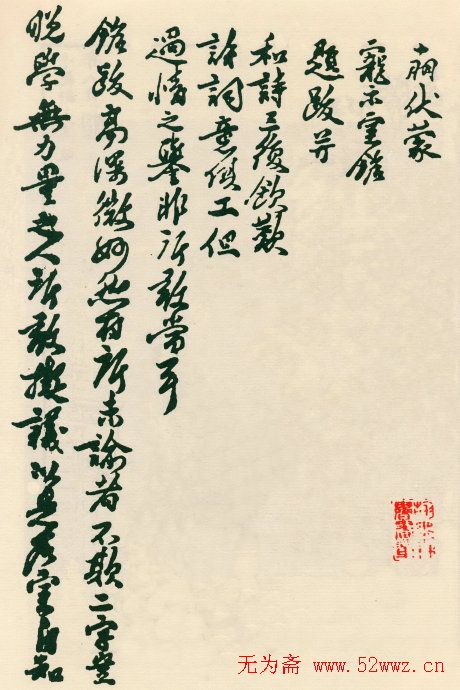 伏蒙
寵示
題跋并
和詩三復欽歎
詞意俱工但
過情之譽非所敢當耳
跋高深微妙然有所未諭者不欺二字豈
晚學無力量之人所敢擬議以是名室自知
无为斋 www.52wwz.cn